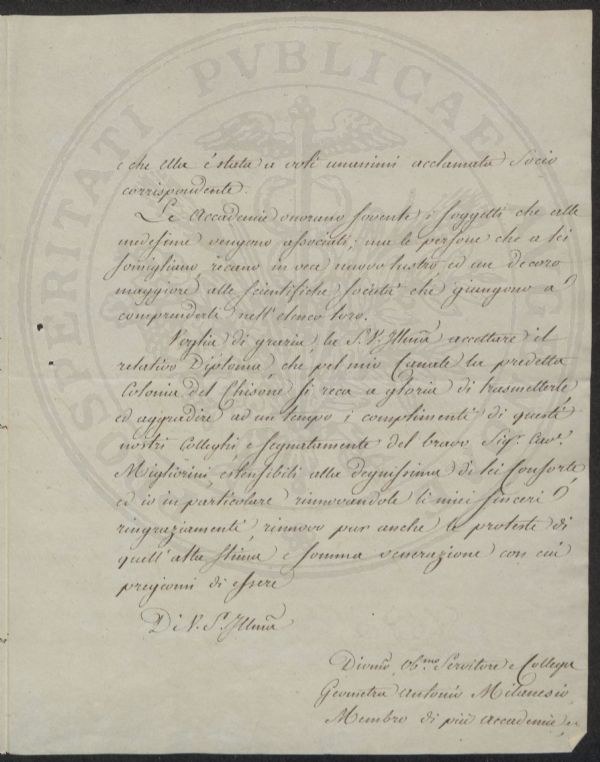 e che Ella è stata a voti unanimi acclamata Socio
corrispondente.
Le Accademie onorano sovente i soggetti che alle
medesime vengono associati; ma le persone che a Lei
somigliano, recano in vece nuovo lustro, ed un decoro
maggiore alle scientifiche società che giungono a
comprenderli nell'elenco loro.
Voglia di grazia, la S. V. Illma accettare il
relativo Diploma, che pel mio Canale la predetta
Colonia del Chisone si reca a gloria di trasmetterle
ed aggradire ad un tempo i complimenti di questi
nostri Colleghi e segnatamente del bravo Sigr. Cavr.
Migliorini estensibili alla degnissima di Lei Consorte,
ed io in particolare rinnovandole li miei sinceri
ringraziamenti, rinnovo pur anche le proteste di
quell'alta stima e somma venerazione con cui
pregiomi di essere
Di V. S. Illma
Divmo Obmo Servitore e Collega
Geometra Antonio Milanesio
Membro di più Accademie
PROSPERITATI PVBLICAE